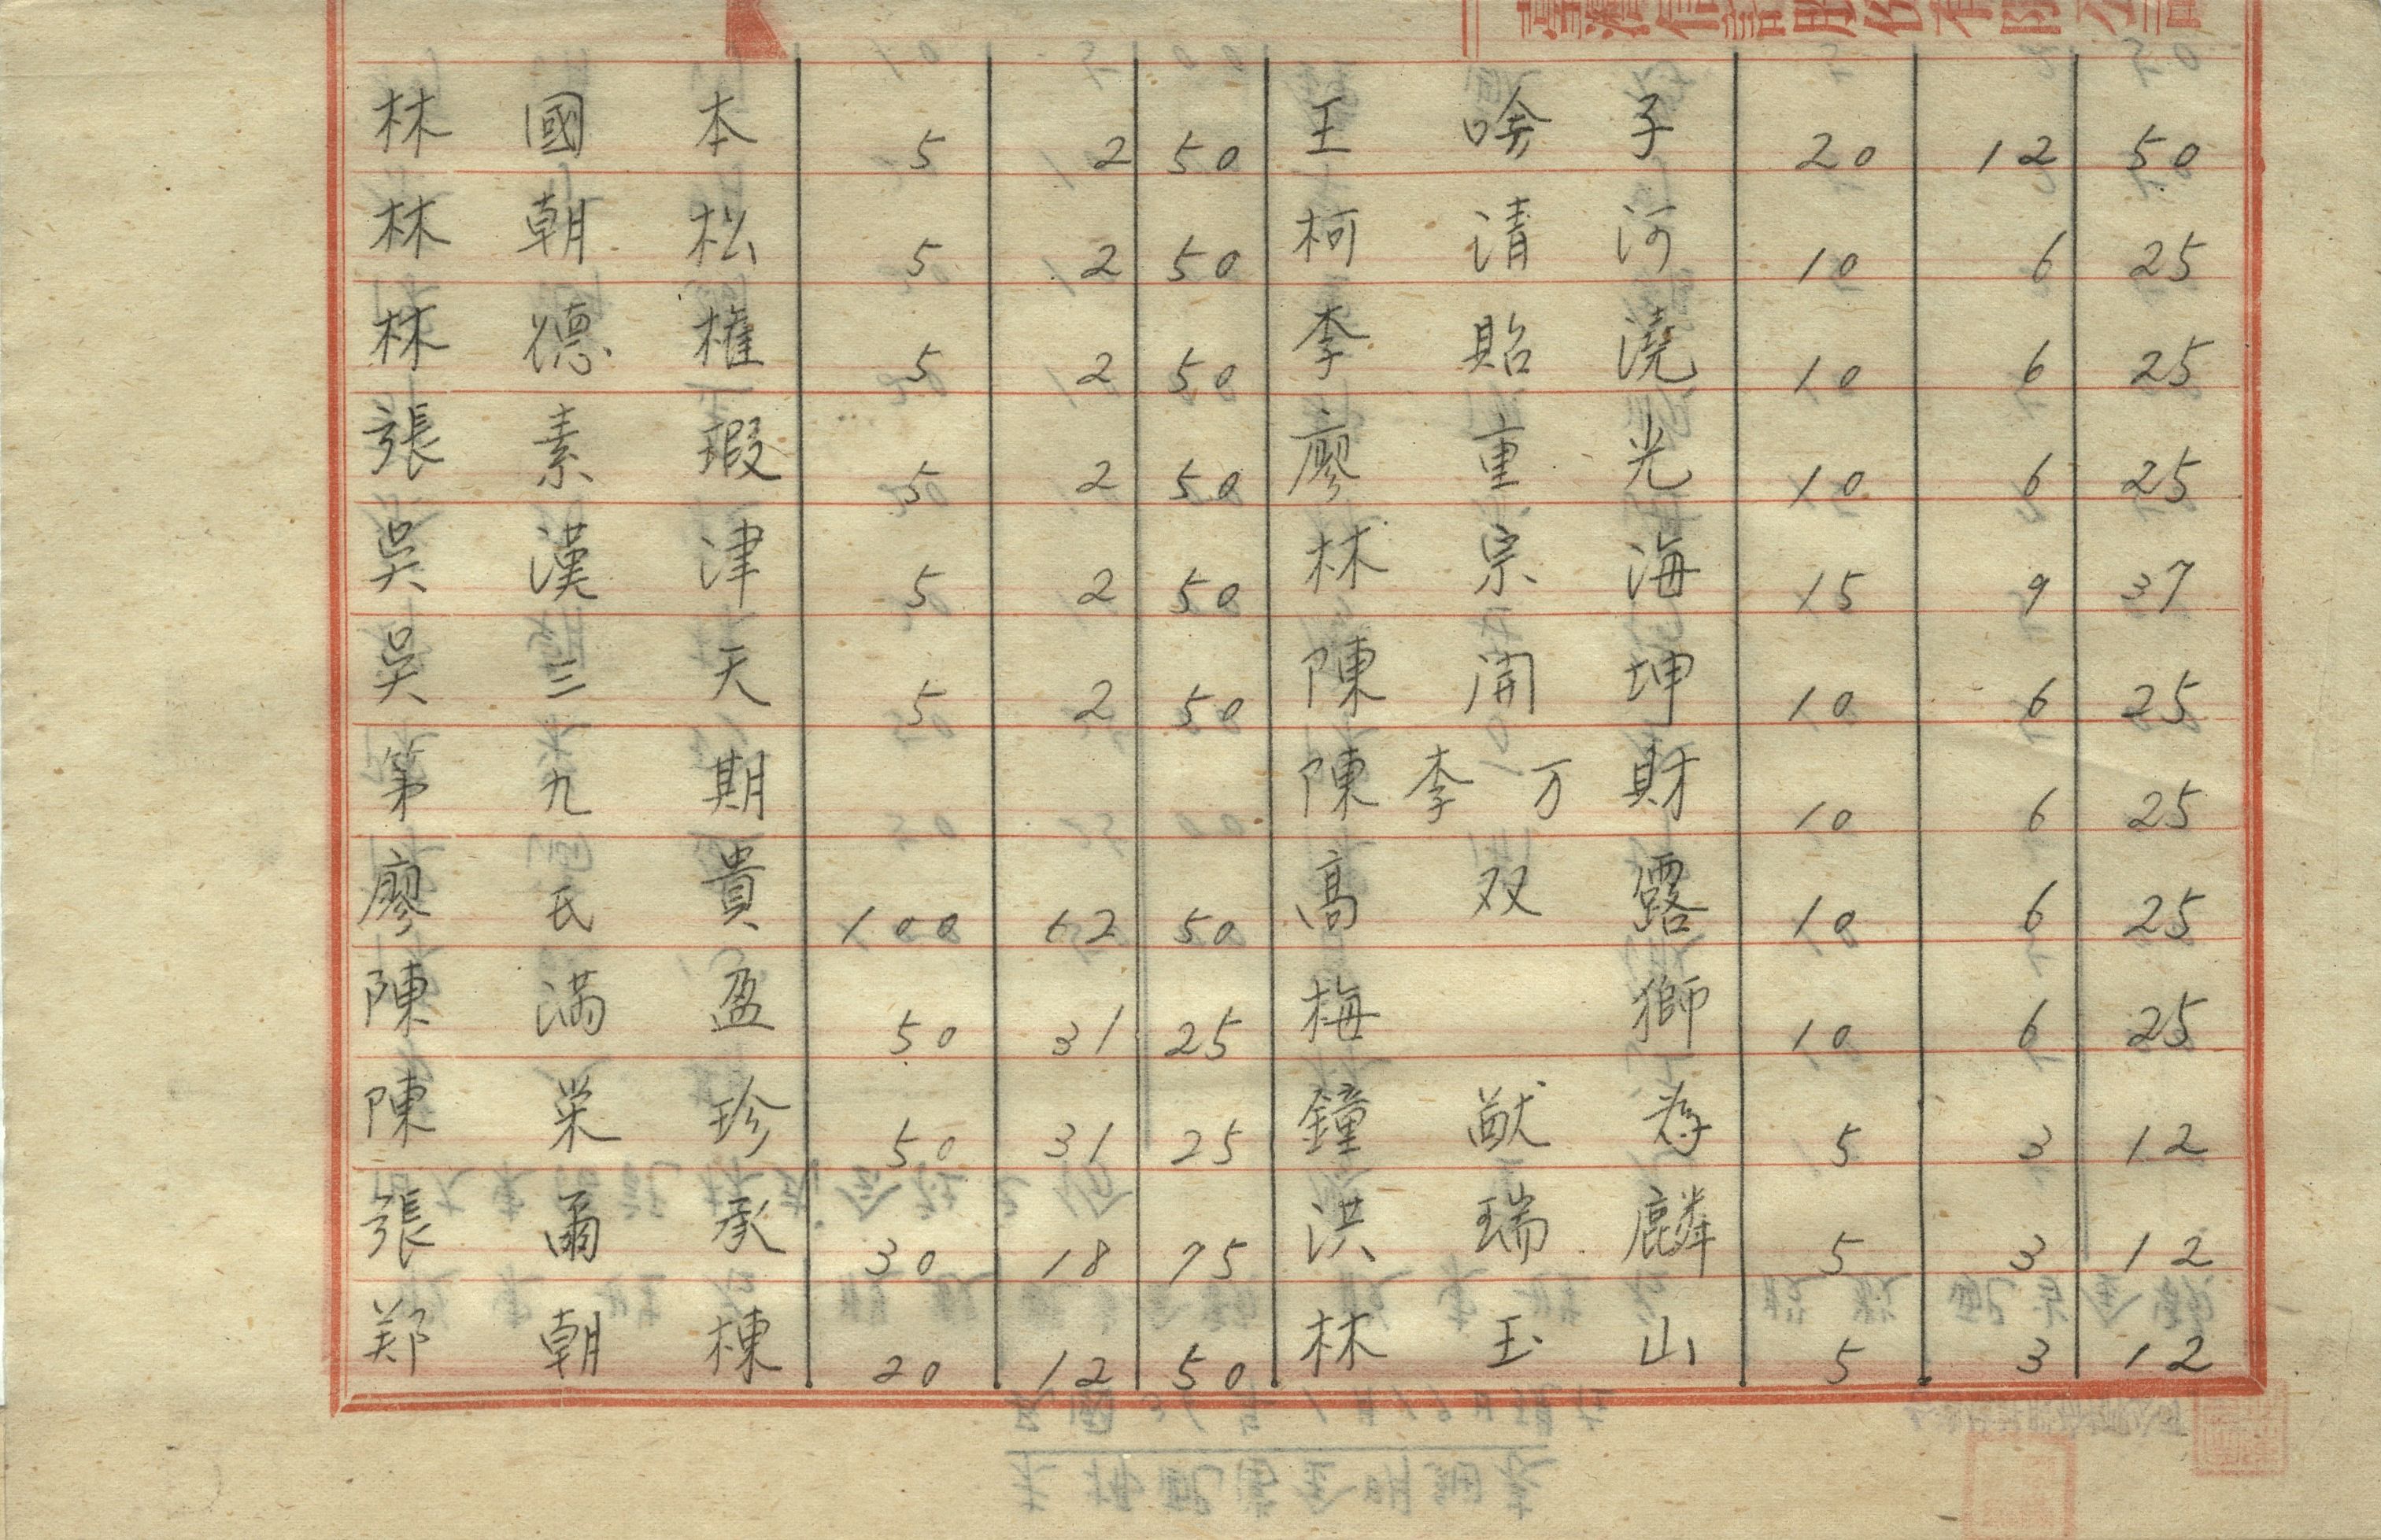 林國本 5 2 50 王啥子 20 12 50
林朝松 5 2 50 柯清河 10 6 25
林德權 5 2 50 李貽澆 10 6 25
張素瑕 5 2 50 廖重光 10 6 25
吳漢津 5 2 50 林宗海 15 9 37
吳三天 5 2 50 陳開坤 10 6 25
第九期 陳李万財 10 6 25
廖氏貴 100 62 50 高双露 10 6 25
陳満盈 50 31 25 梅獅 10 6 25
陳栄珍 50 31 25 鐘猷 5 3 12
張爾承 30 18 75 洪瑞麟 5 3 12
郑朝棟 20 12 50 林玉山 5 3 12